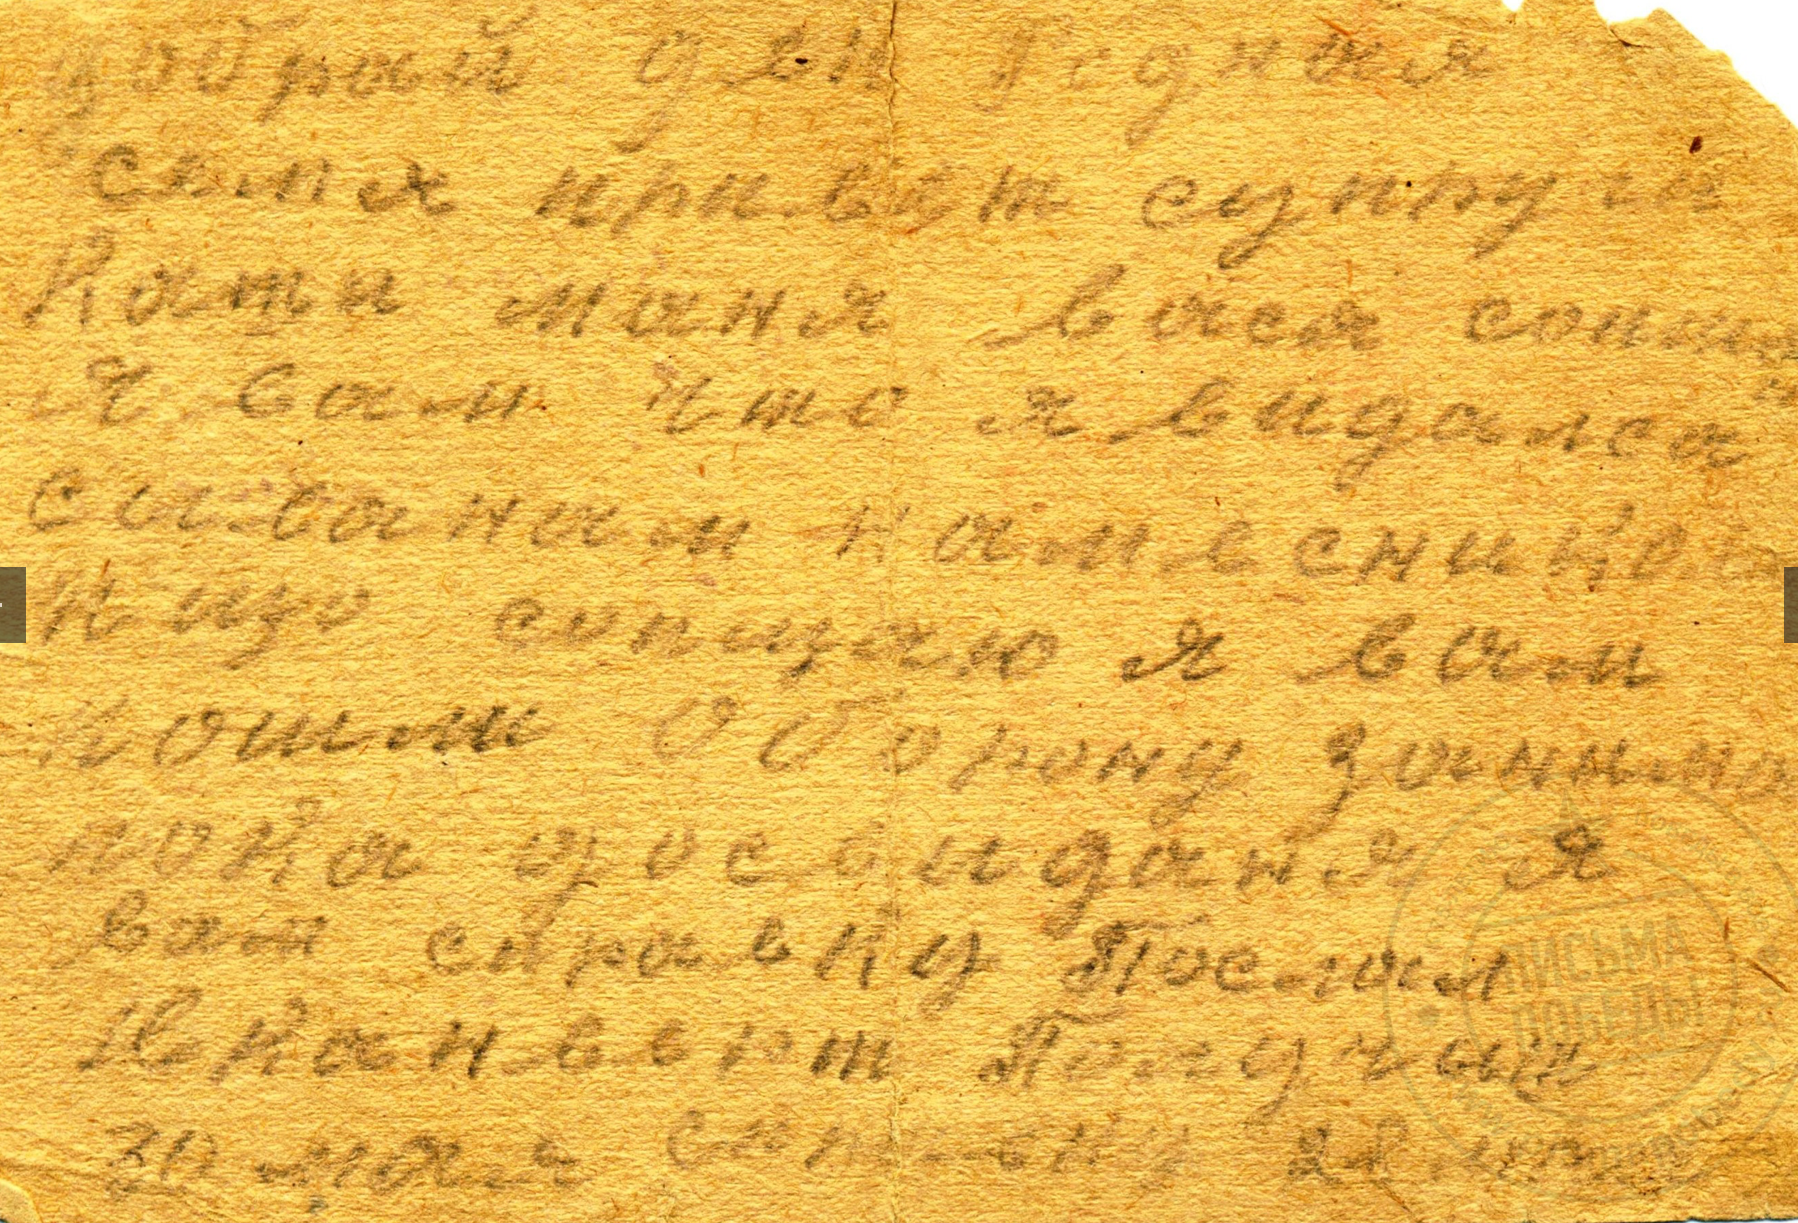 добрый ден Родная
семя привет супруги
Кати маня вася сопш
Я вам что я видался
сываном намесник
нищо сопщаю я вам
пошли Оборону заними
пока досвиданя я
вам справку Послал
Конверт Получил
30 мая
ПИСЬМА
ПОБЕДЫ